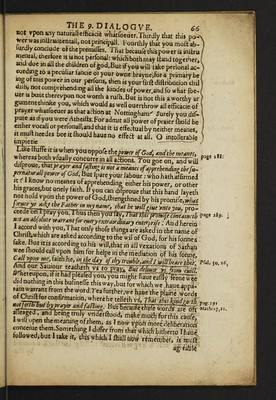 THE 9. DIALOGVE. 66
not vpon any naturall efficacie whatsoeuer. Thirdly that this po-
wer was instrumentall, not principall. Fourthly that you most ab-
surdly conclude of the premisses, That because this power is instru
mentall, therfore it is not principall: which both may stand together,
and doe in all the children of god. But if you will take personal ac-
cording to a peculiar fancie of your owne brayne, for a primary be
ing of this power in our persons, then is your first distribution chil
dish, not comprehending all the kindes of power, and so what soe-
uer is built therevpon not worth a rush. But is not this a worthy ar
gument thinke you, which would as well ouerthrow all efficacie of
prayer whatsoeuer as that action at Nottingham? Surely you dis-
pute as if you were Atheists. For admit all power of praier should be
either vocall or personall, and that it is effectual by neither meanes,
it must needes bee it should haue no effect at all. O intollerable
impietie
Like stuffe it is when you oppose the power of God, and the meanes,
whereas both vsually concurre in all actions. You goe on, and will
disproue, that prayer and fasting is as a meanes of apprehending the su-
pernaturall power of God. But spare your labour: who hath affirmed
it? I know no meanes of apprehending either his power, or other
his graces, but onely faith. If you can disproue that this hand layeth
not hold vpon the power of God, strengthened by his promise, what
soeuer yee aske the Father in my name, that he will giue vnto you, pro-
ceede on I pray you. Thus then you say, That this promise containeth
not an absolute warrant for euery extraordinary enterprise. And herein
I accord with you, That only those things are asked in the name of
Christ, which are asked according to the wil of God, for his sonnes
sake. But it is according to his will, that in all vexations of Sathan
wee should call vpon him for helpe in the mediation of his sonne,
Call vpon me, saith he, in the day of thy trouble, and I will heare thee,
And our Sauiour teacheth vs to pray, But deliuer vs from euill.
Wherevpon, if it had pleased you, you might haue easily seene wee
did nothing in this businesse this way, but for which we haue appa-
rant warrant from the word. Yea further, we haue the plaine words
of Christ for confirmation, where he telleth vs, That this kind goeth
not forth but by prayer and fasting. But because these words are oft
alleaged, and being truly vnderstood, make much for this cause,
I will open the meaning of them, as I now vpon more deliberation
conceiue them. Something I differ from that which hitherto I haue
followed, but I take it, this which I shall now remember, is most
agreable
page 288.
page 289.
Psal. 50, 16,
pag 291
Math: 17, 21.